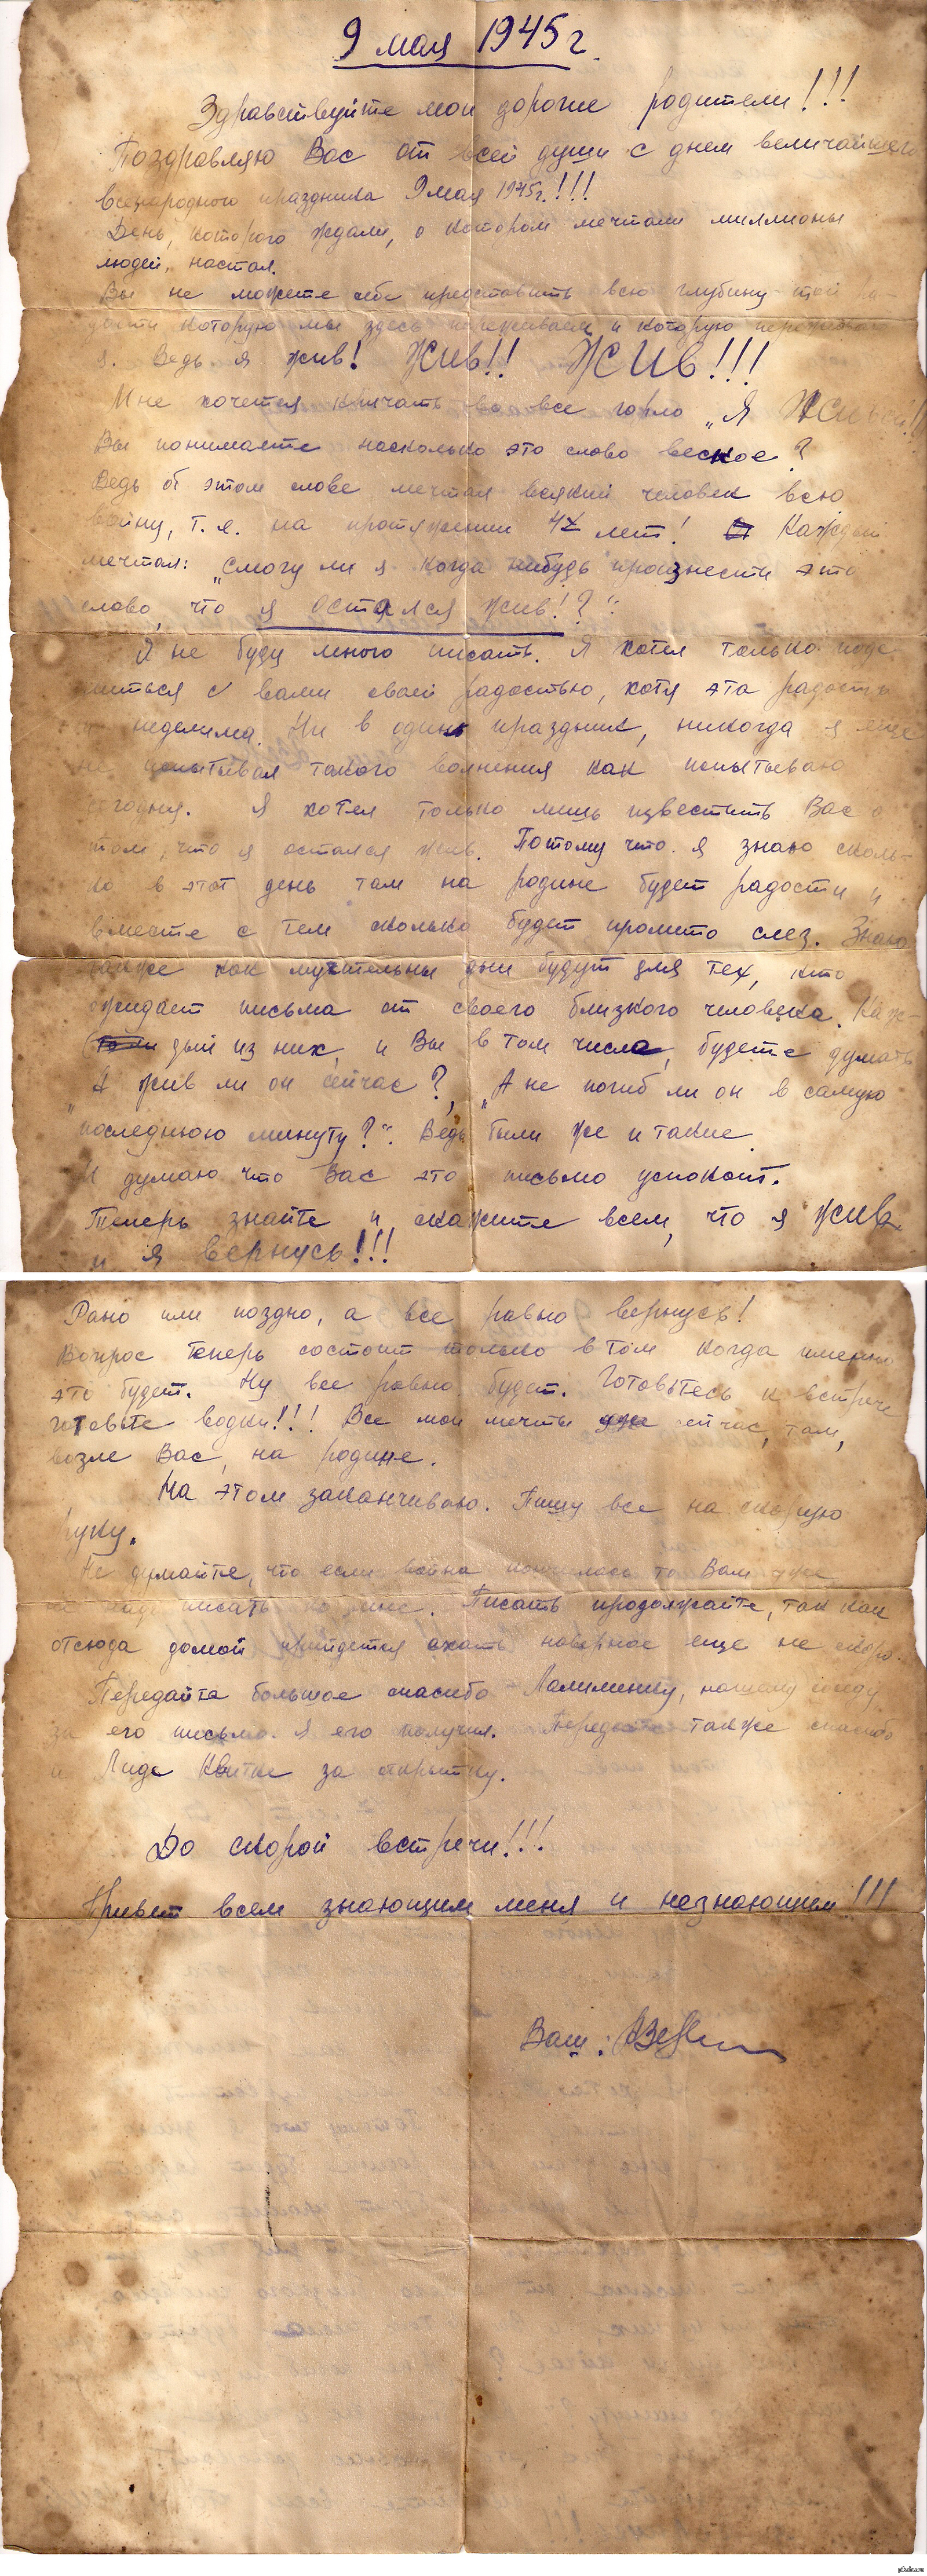 9 мая 1945 г.
Здравствуйте мои дорогие родители!!!
Поздравляю Вас от всей души с днем величайшего
всенародного праздника 9 мая 1945г.!!!
День, которого ждали, о котором мечтали миллионы
людей, настал.
Вы не можете себе представить всю глубину той ра-
дости которую мы здесь переживаем и которую переживаю
я. Ведь я жив! Жив!! Жив!!!
Мне хочется кричать во все горло „Я
Вы понимаете насколько это слово веское?
Ведь об этом слове мечтал всякий человек всю
войну, т.е. на протяжении 4х лет! Каждый
мечтал: „Смогу ли я когда нибудь произнести это
слово, что я остался жив!?“.
Я не буду много писать. Я хотел только поде-
литься с вами своей радостью, хотя эта радость
неделима. Ни в один праздник, никогда я еще
не испытывал такого волнения как испытываю
сегодня. Я хотел только лишь известить Вас о
том, что я остался жив. Потому что я знаю сколь-
ко в этот день там на родине будет радости и
вместе с тем сколько будет пролито слез. Знаю
также как мучительны дни будут для тех, кто
ожидает письма от своего близкого человека. Каж-
дый из них, и Вы в том числе, будете думать
„А жив ли он сейчас?, „А не погиб ли он в самую
последнюю минуту?“. Ведь были же и такие.
Я думаю что Вас это письмо успокоит.
Теперь знайте и скажите всем, что я жив
и я вернусь!!!
Рано или поздно, а все равно вернусь!
Вопрос теперь состоит только в том когда именно
это будет. Ну все равно будет. Готовьтесь к встрече
готовьте водки!!! Все мои мечты уже сейчас, там,
возле Вас, на родине.
На этом заканчиваю. Пишу все на скорую
руку.
Не думайте, что если война кончилась то Вам уже
не писать ко мне. Писать продолжайте, так как
отсюда домой прийдется ехать наверное еще не скоро.
Передайте большое спасибо нашему
за его письмо. Я его получил. Передайте также спасибо
и Лиде Квитке за открытку.
До скорой встречи!!!
Привет всем знающим меня и незнающим!!!
Ваш:
pikabu.ru